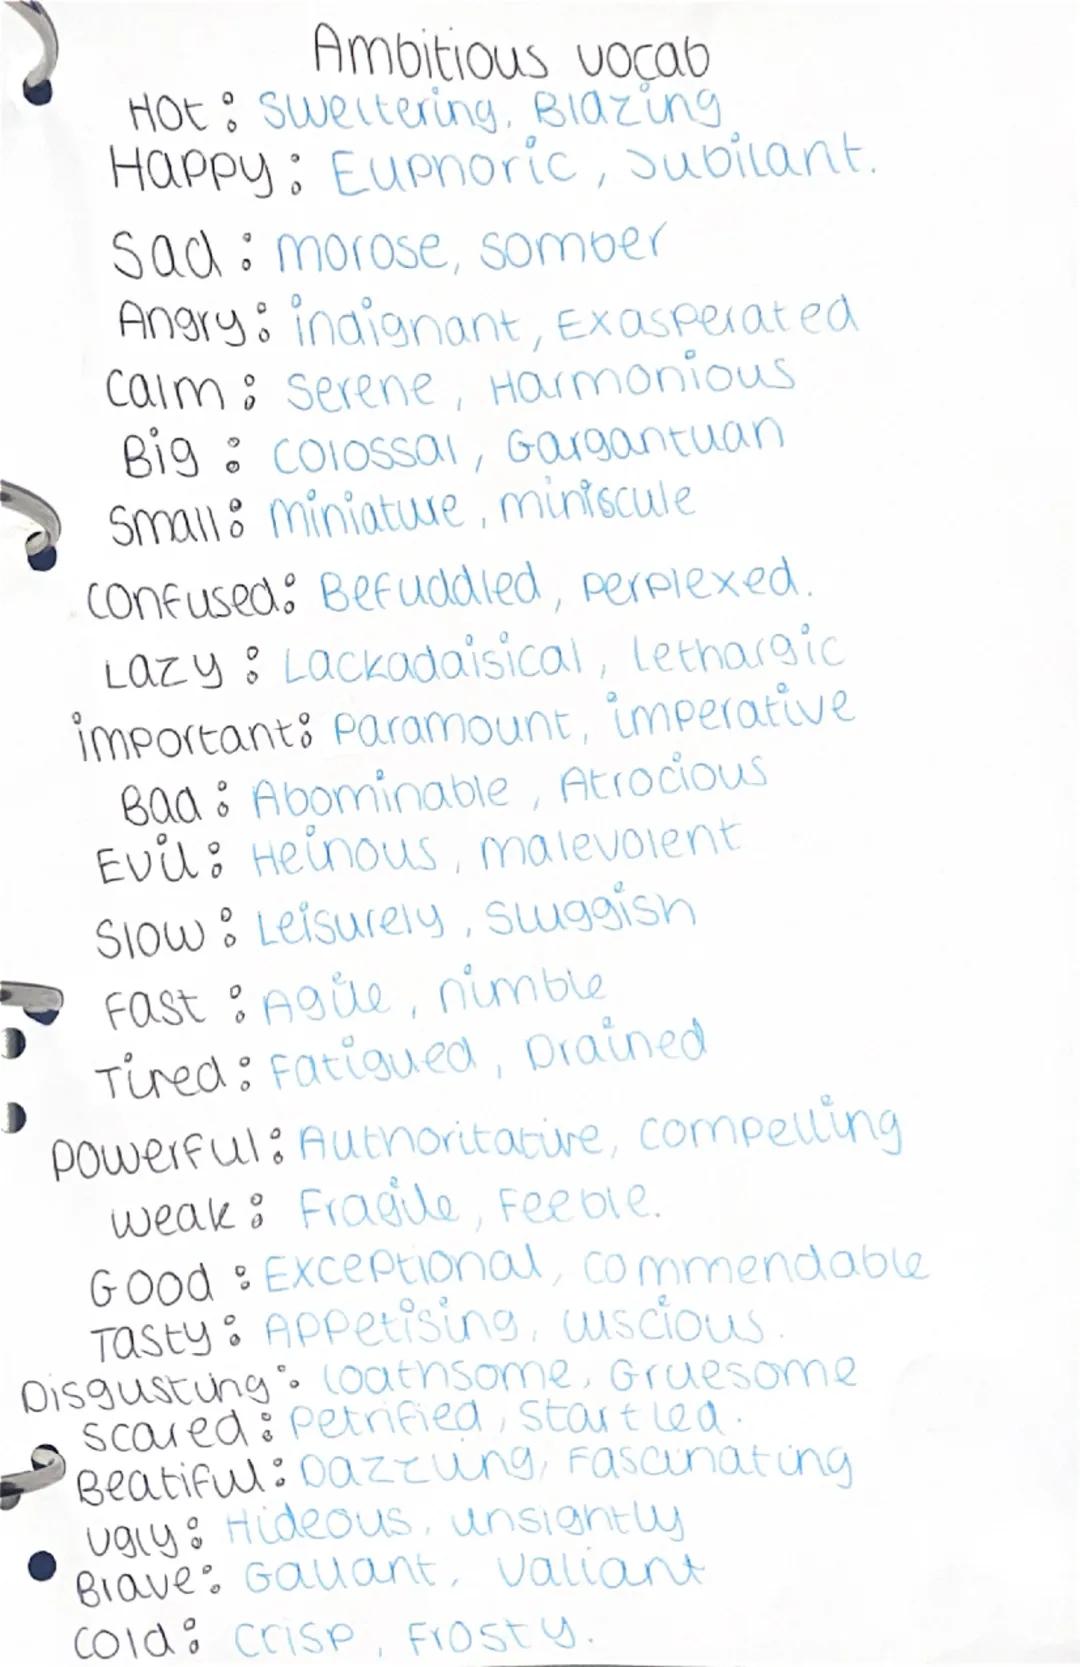 Ambitious vocab
Hot: Sweltering, Blazing
Happy: Euphoric, Jubilant.
Sad: morose, somber
Angry: indignant, Exasperated
Calm: Serene, Harmonious
Big: Colossal, Gargantuan
Small: miniature, miniscule
confused: Befuddled, perplexed.
Lazy: Lackadaisical, lethargic
important: Paramount, imperative
Bad: Abominable, Atrocious
Evil: Heinous, malevolent
Slow: Leisurely, Sluggish
Fast: Agile, nimble
Tired: Fatigued, Drained
Powerful: Authoritative, compelling
weak: Fragile, Feeble.
Good: Exceptional, commendable
Tasty: Appetising, luscious.
Disgusting: loathsome, Gruesome
scared: Petrified, Startled.
Beatiful: Dazzling, Fascinating
ugly: Hideous, unsightly
Brave: Gallant, Valiant
cold: crisp, Frosty.